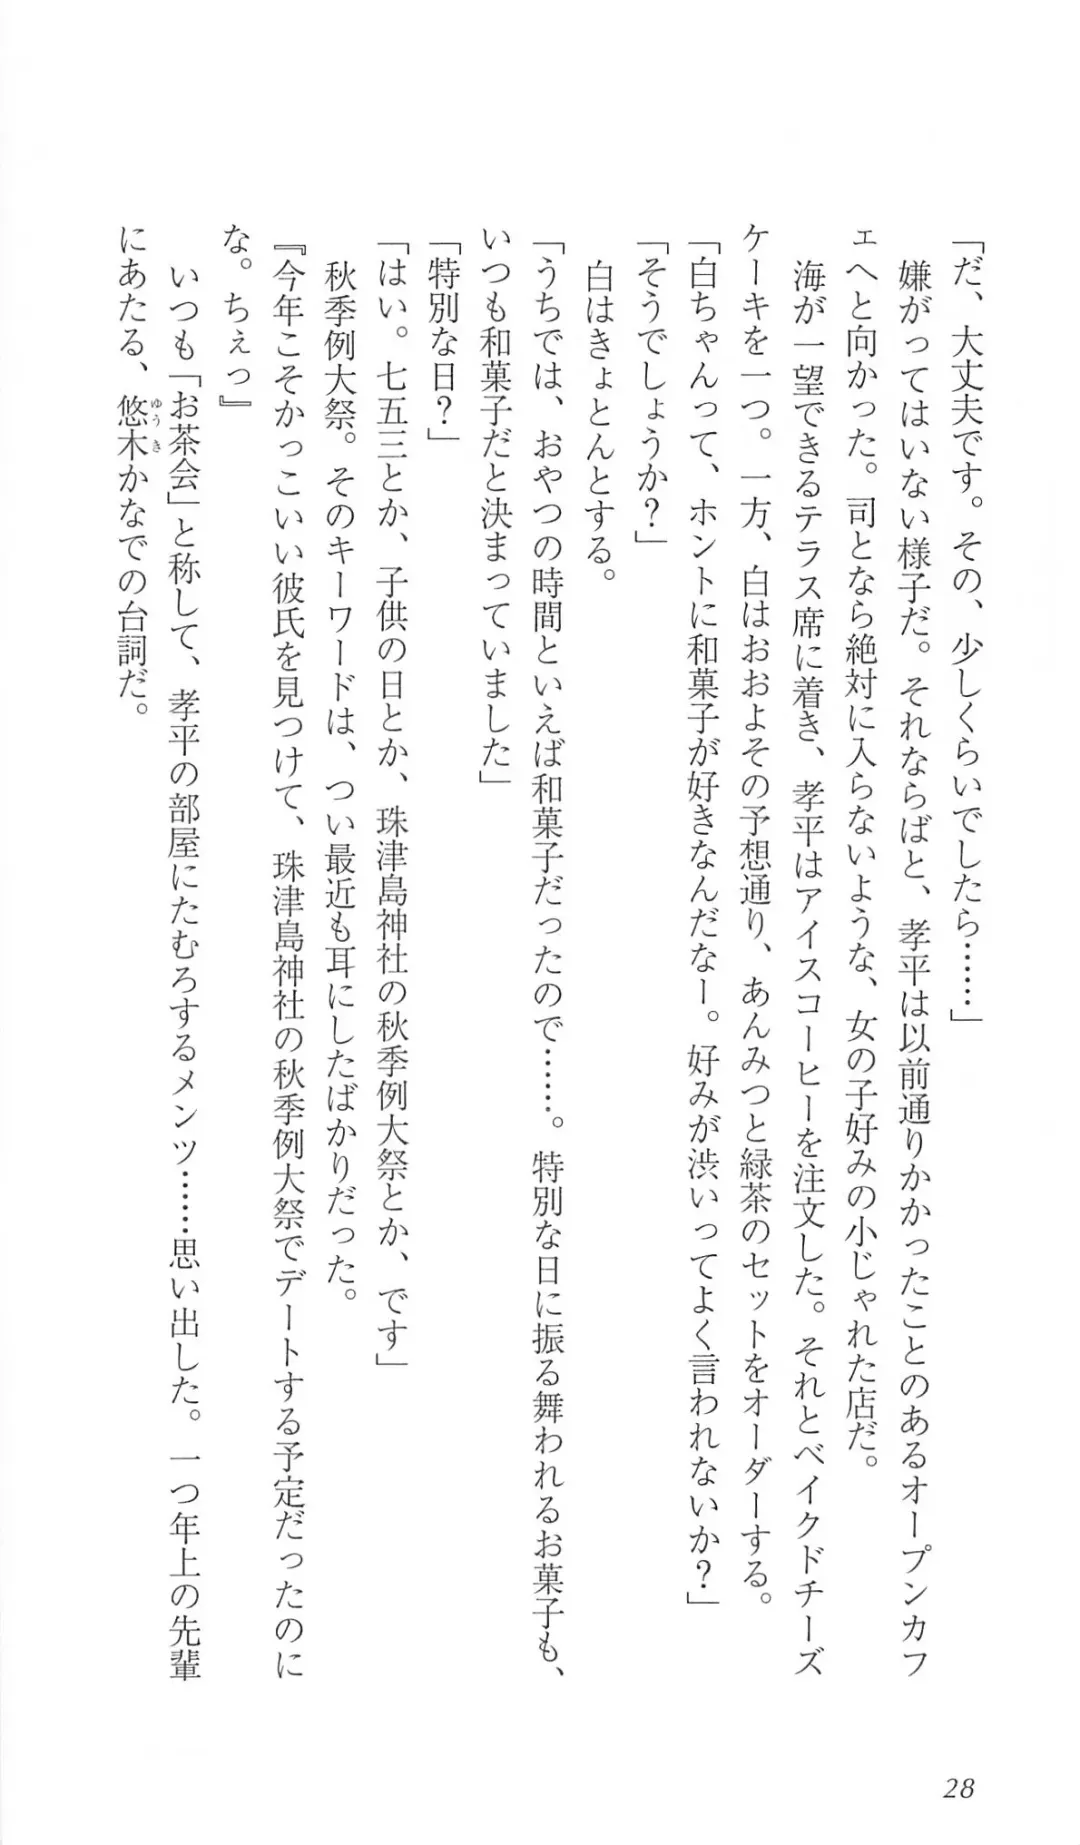 「だ、大丈夫です。その、少しくらいでしたら……」
　嫌がってはいない様子だ。それならばと、孝平は以前通りかかったことのあるオープンカフ
ェへと向かった。司となら絶対に入らないような、女の子好みの小じゃれた店だ。
　海が一望できるテラス席に着き、孝平はアイスコーヒーを注文した。それとベイクドチーズ
ケーキを一つ。一方、白はおおよその予想通り、あんみつと緑茶のセットをオーダーする。
「白ちゃんって、ホントに和菓子が好きなんだなー。好みが渋いってよく言われないか？」
「そうでしょうか？」
　白はきょとんとする。
「うちでは、おやつの時間といえば和菓子だったので……。特別な日に振る舞われるお菓子も、
いつも和菓子だと決まっていました」
「特別な日？」
「はい。七五三とか、子供の日とか、珠津島神社の秋季例大祭とか、です」
　秋季例大祭。そのキーワードは、つい最近も耳にしたばかりだった。
『今年こそかっこいい彼氏を見つけて、珠津島神社の秋季例大祭でデートする予定だったのに
な。ちぇっ』
　いつも「お茶会」と称して、孝平の部屋にたむろするメンツ……思い出した。一つ年上の先輩
にあたる、悠木かなでの台詞だ。
ゆうき
28